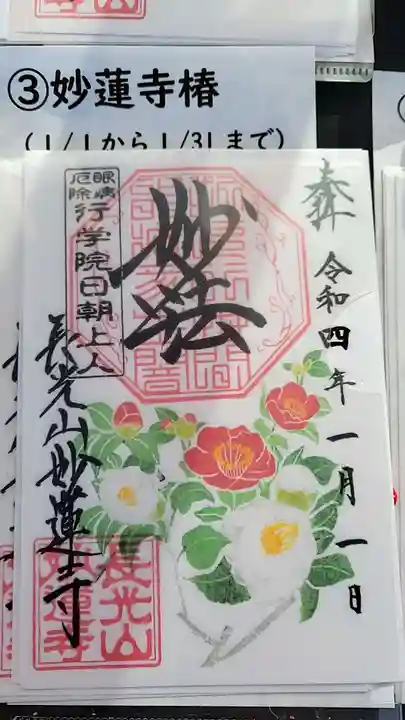 ③妙蓮寺椿
（1/1から1/31まで）
奉拝
令和四年一月一日
妙法
眼病
厄除
行学院日朝上人
長光山妙蓮寺
長光山
妙蓮寺